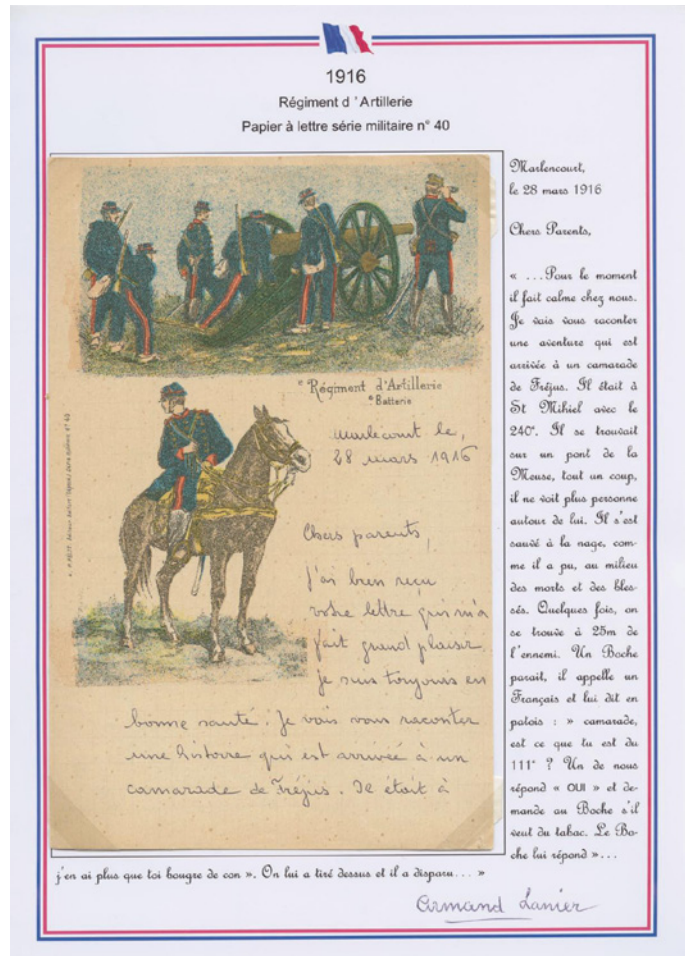 1916
Régiment d 'Artillerie
Papier à lettre série militaire n° 40
e Régiment d'Artillerie
e Batterie
Marlecourt le,
28 mars 1916
Chers parents,
j'ai bien reçu
votre lettre qui m'a
fait grand plaisir
je suis toujours en
bonne santé. Je vais vous raconter
une histoire qui est arrivée à un
camarade de Fréjus. Il était à
Marlencourt,
le 28 mars 1916
Chers Parents,
« ...Pour le moment
il fait calme chez nous.
Je vais vous raconter
une aventure qui est
arrivée à un camarade
de Fréjus. Il était à
St Mihiel avec le
240°. Il se trouvait
sur un pont de la
Meuse, tout un coup,
il ne voit plus personne
autour de lui. Il s'est
sauvé à la nage, com-
me il a pu, au milieu
des morts et des bles-
sés. Quelques fois, on
se trouve à 25m de
l'ennemi. Un Boche
parait, il appelle un
Français et lui dit en
patois : » camarade,
est ce que tu est du
111° ? Un de nous
répond « OUI » et de-
mande au Boche s'il
veut du tabac. Le Bo-
che lui répond »...
j'en ai plus que toi bougre de con ». On lui a tiré dessus et il a disparu... »
Armand Lanier